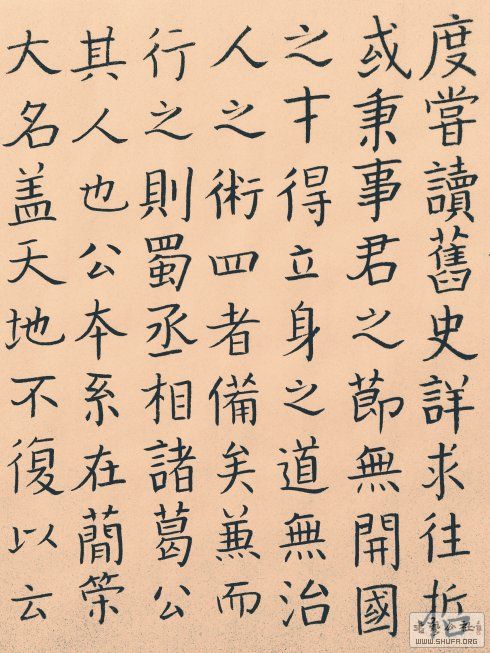 度嘗讀舊史詳求往哲
或秉事君之節無開國
之才得立身之道無治
人之術四者備矣兼而
行之則蜀丞相諸葛公
其人也公本系在簡策
大名盖天地不復以云
WWW.SHUFA.ORG